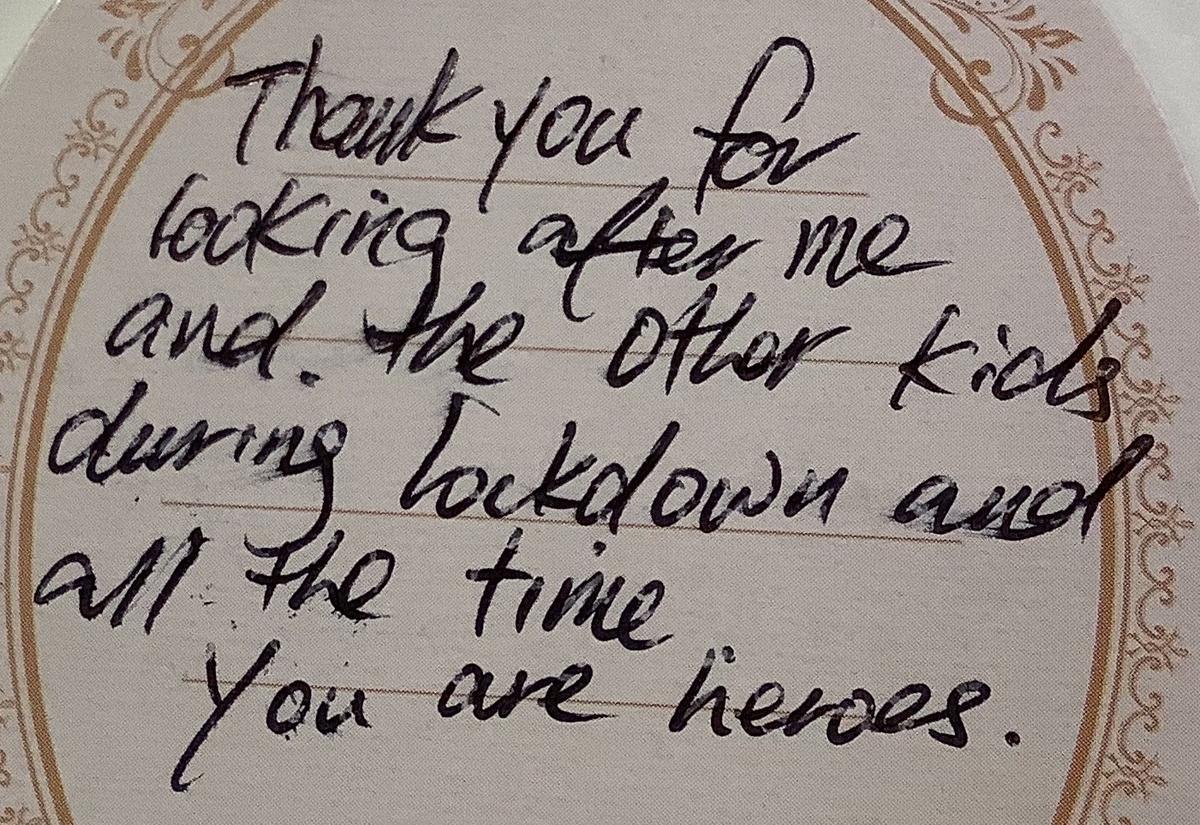 Thank you for
looking after me
and. the other kids
during lockdown and
all the time
You are heroes.